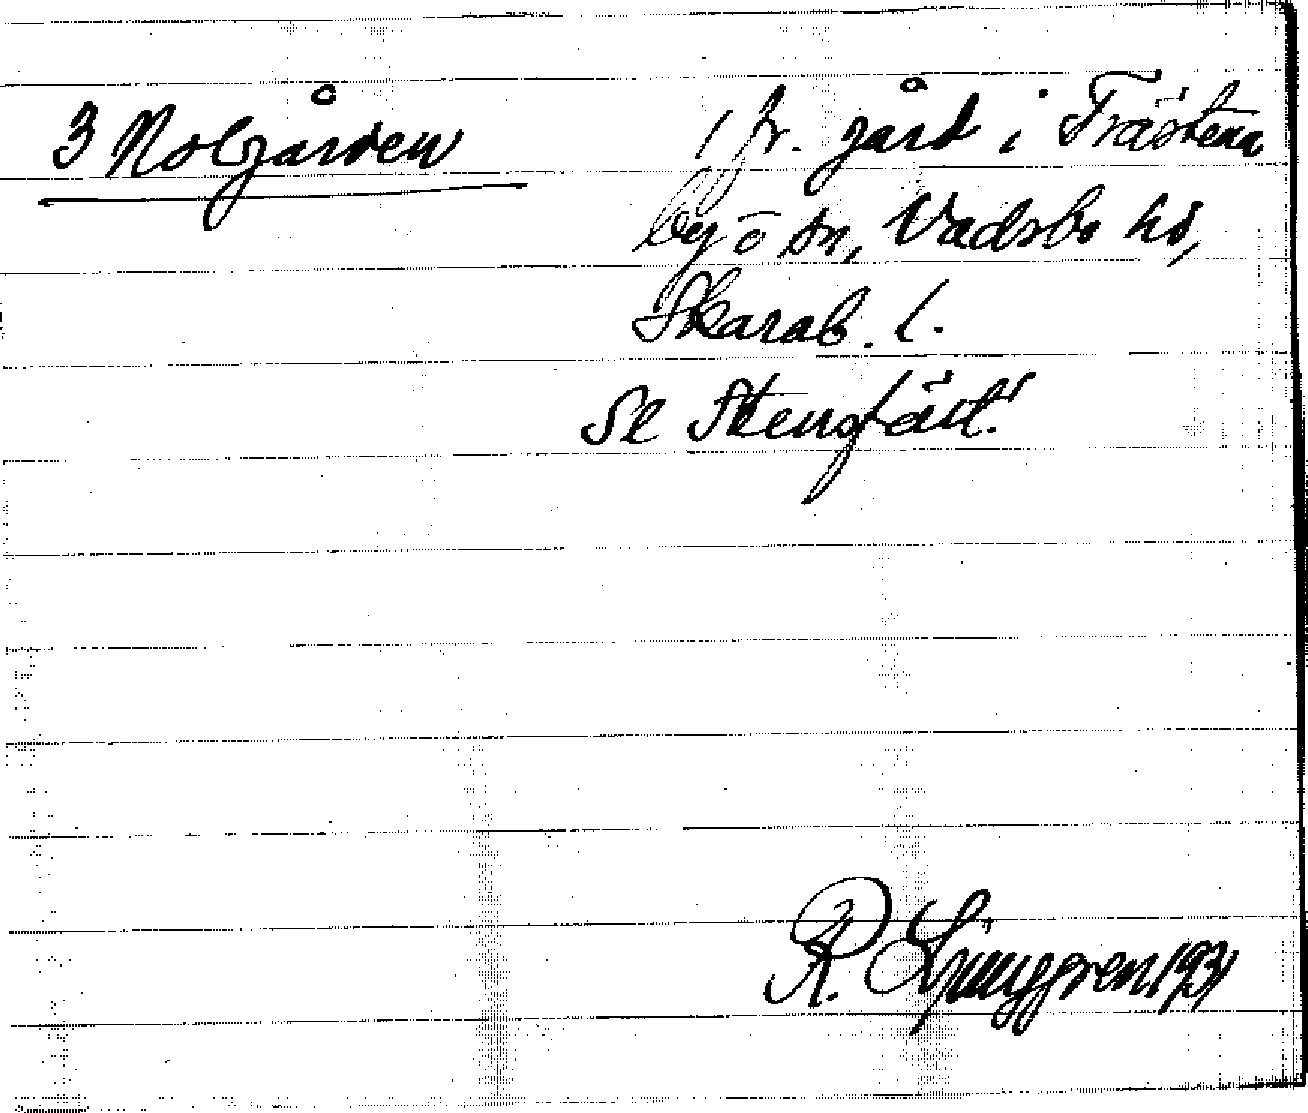 3 Nolgården
1 fr. gård i Trästena
by o sn, Vadsbo hd,
Skarab. l.
Se Stengärd!
R. Ljunggren 1931